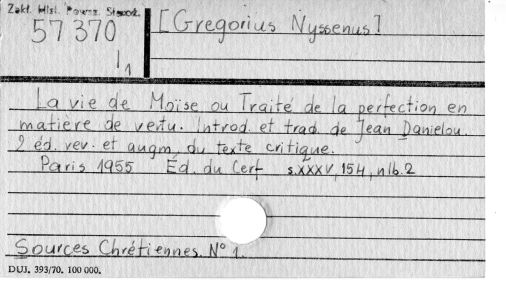 Zakł. Hist. Powsz. Staroż.
57370
I1
[Gregorius Nyssenus]
La vie de Moïse ou Traité de la perfection en
matière de vertu. Introd. et trad. de Jean Danielou.
2 éd. rev. et augm. du texte critique.
Paris 1955 Éd. du Cerf s.XXXV, 154, nlb.2
Sources Chrétiennes. N° 1.
DUJ. 393/70. 100 000.